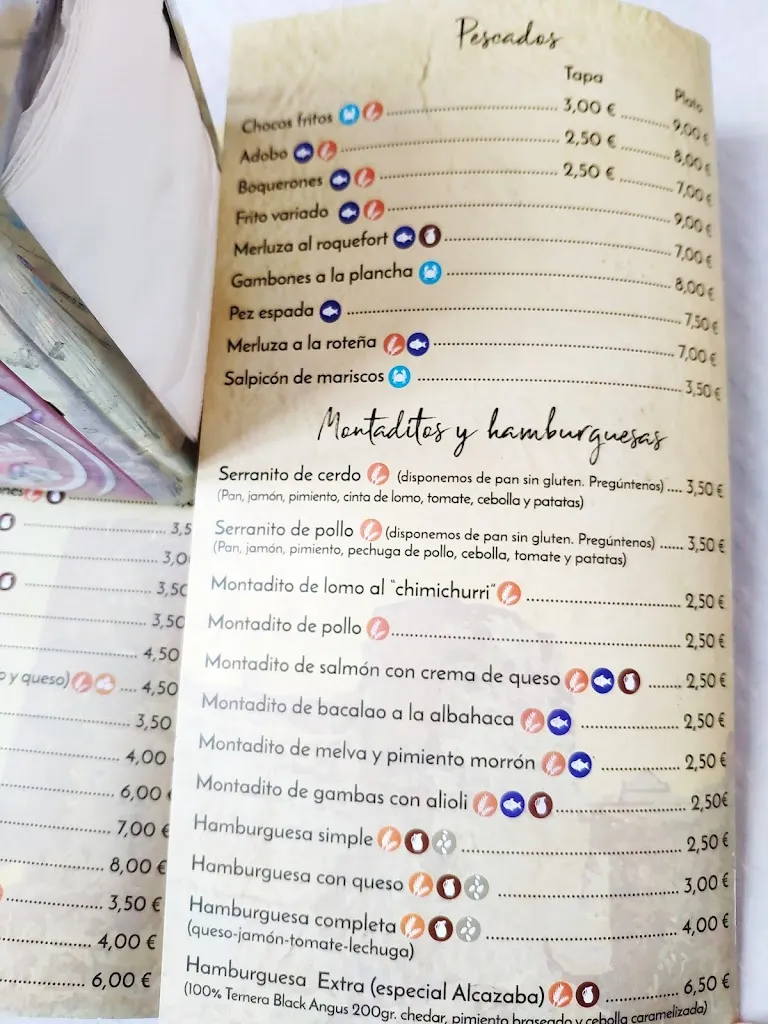 Pescados
Tapa Plato
Chocos fritos 3,00 € 9,00 €
Adobo 2,50 € 8,00 €
Boquerones 2,50 € 7,00 €
Frito variado 9,00 €
Merluza al roquefort 7,00 €
Gambones a la plancha 8,00 €
Pez espada 7,50 €
Merluza a la roteña 7,00 €
Salpicón de mariscos 3,50 €
Montaditos y hamburguesas
Serranito de cerdo (disponemos de pan sin gluten. Pregúntenos) 3,50 €
(Pan, jamón, pimiento, cinta de lomo, tomate, cebolla y patatas)
Serranito de pollo (disponemos de pan sin gluten. Pregúntenos) 3,50 €
(Pan, jamón, pimiento, pechuga de pollo, cebolla, tomate y patatas)
Montadito de lomo al "chimichurri" 2,50 €
Montadito de pollo 2,50 €
Montadito de salmón con crema de queso 2,50 €
Montadito de bacalao a la albahaca 2,50 €
Montadito de melva y pimiento morrón 2,50 €
Montadito de gambas con alioli 2,50€
Hamburguesa simple 2,50 €
Hamburguesa con queso 3,00 €
Hamburguesa completa 4,00 €
(queso-jamón-tomate-lechuga)
Hamburguesa Extra (especial Alcazaba) 6,50 €
(100% Ternera Black Angus 200gr. chedar, pimiento braseado y cebolla caramelizada)
3,5
3,0
3,50
3,50
4,50
y queso) 4,50
3,50
4,00
6,00
7,00 €
8,00 €
3,50 €
4,00 €
6,00 €